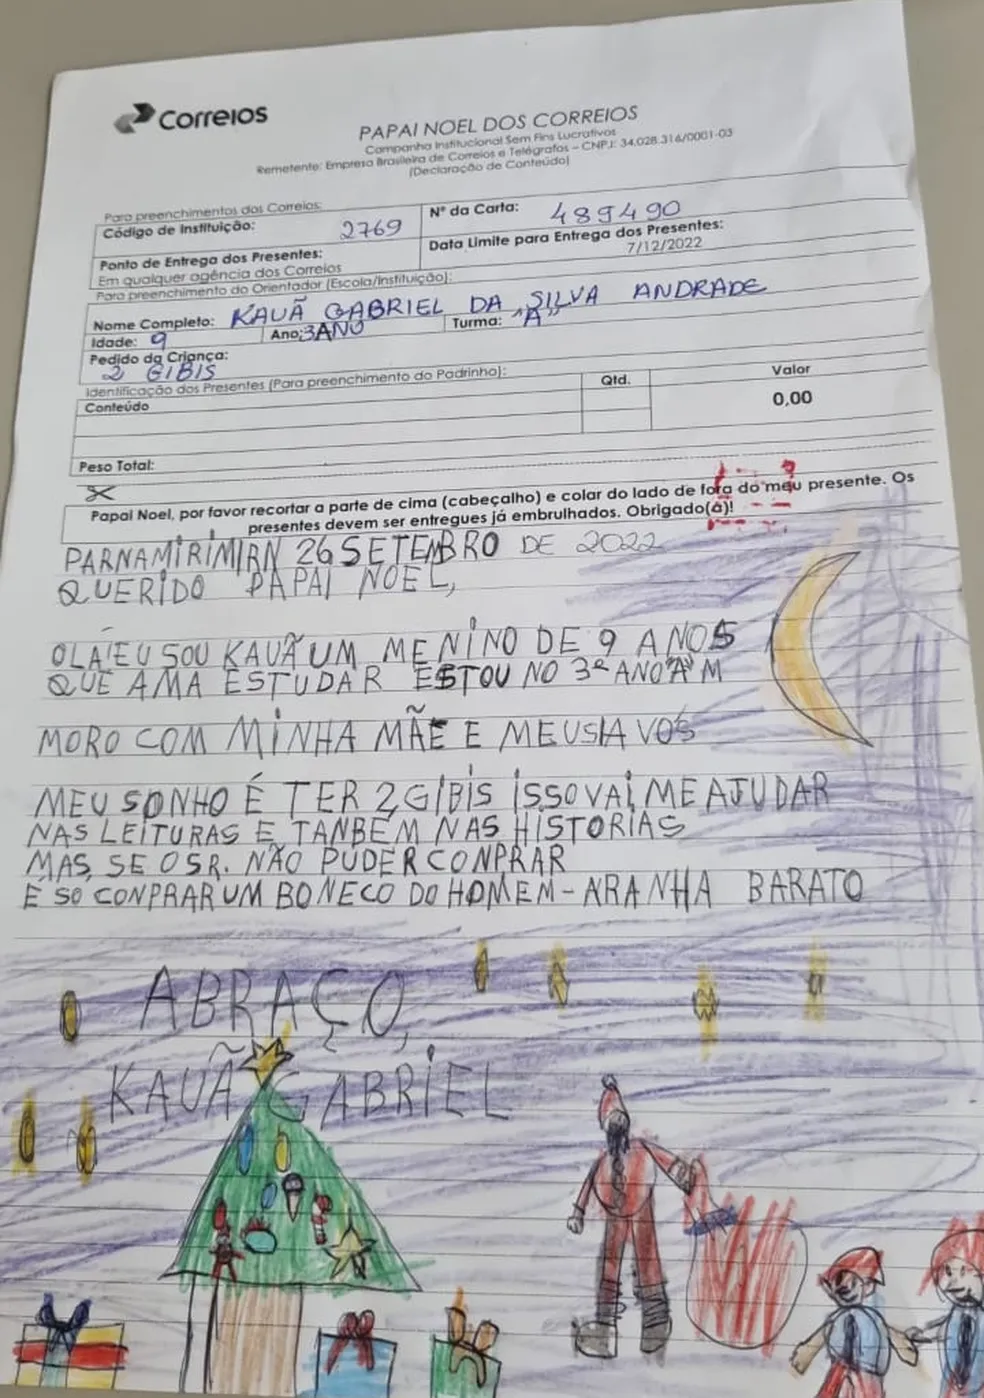 Correios
PAPAI NOEL DOS CORREIOS
Campanha Institucional Sem Fins Lucrativos
Remetente: Empresa Brasileira de Correios e Telégrafos – CNPJ: 34.028.316/0001-03
(Declaração de Conteúdo)
Para preenchimentos dos Correios:
Código de Instituição: 2769
Nº da Carta: 489490
Ponto de Entrega dos Presentes:
Em qualquer agência dos Correios
Data Limite para Entrega dos Presentes:
7/12/2022
Para preenchimento do Orientador (Escola/Instituição):
Nome Completo: KAUÃ GABRIEL DA SILVA ANDRADE
Idade: 9 Ano: 3ANO Turma: "A"
Pedido da Criança:
2 GIBIS
Identificação dos Presentes (Para preenchimento do Padrinho):
Conteúdo Qtd. Valor
0,00
Peso Total:
Papai Noel, por favor recortar a parte de cima (cabeçalho) e colar do lado de fora do meu presente. Os
presentes devem ser entregues já embrulhados. Obrigado(a)!
PARNAMIRIM|RN 26 SETEMBRO DE 2022
QUERIDO PAPAI NOEL,
OLÁ EU SOU KAUÃ UM MENINO DE 9 ANOS
QUE AMA ESTUDAR ESTOU NO 3º ANO "A" M
MORO COM MINHA MÃE E MEUS AVÓS
MEU SONHO É TER 2 GIBIS ISSO VAI ME AJUDAR
NAS LEITURAS E TANBÉM NAS HISTORIAS
MAS, SE O SR. NÃO PUDER CONPRAR
É SO CONPRAR UM BONECO DO HOMEM-ARANHA BARATO
ABRAÇO,
KAUÃ GABRIEL